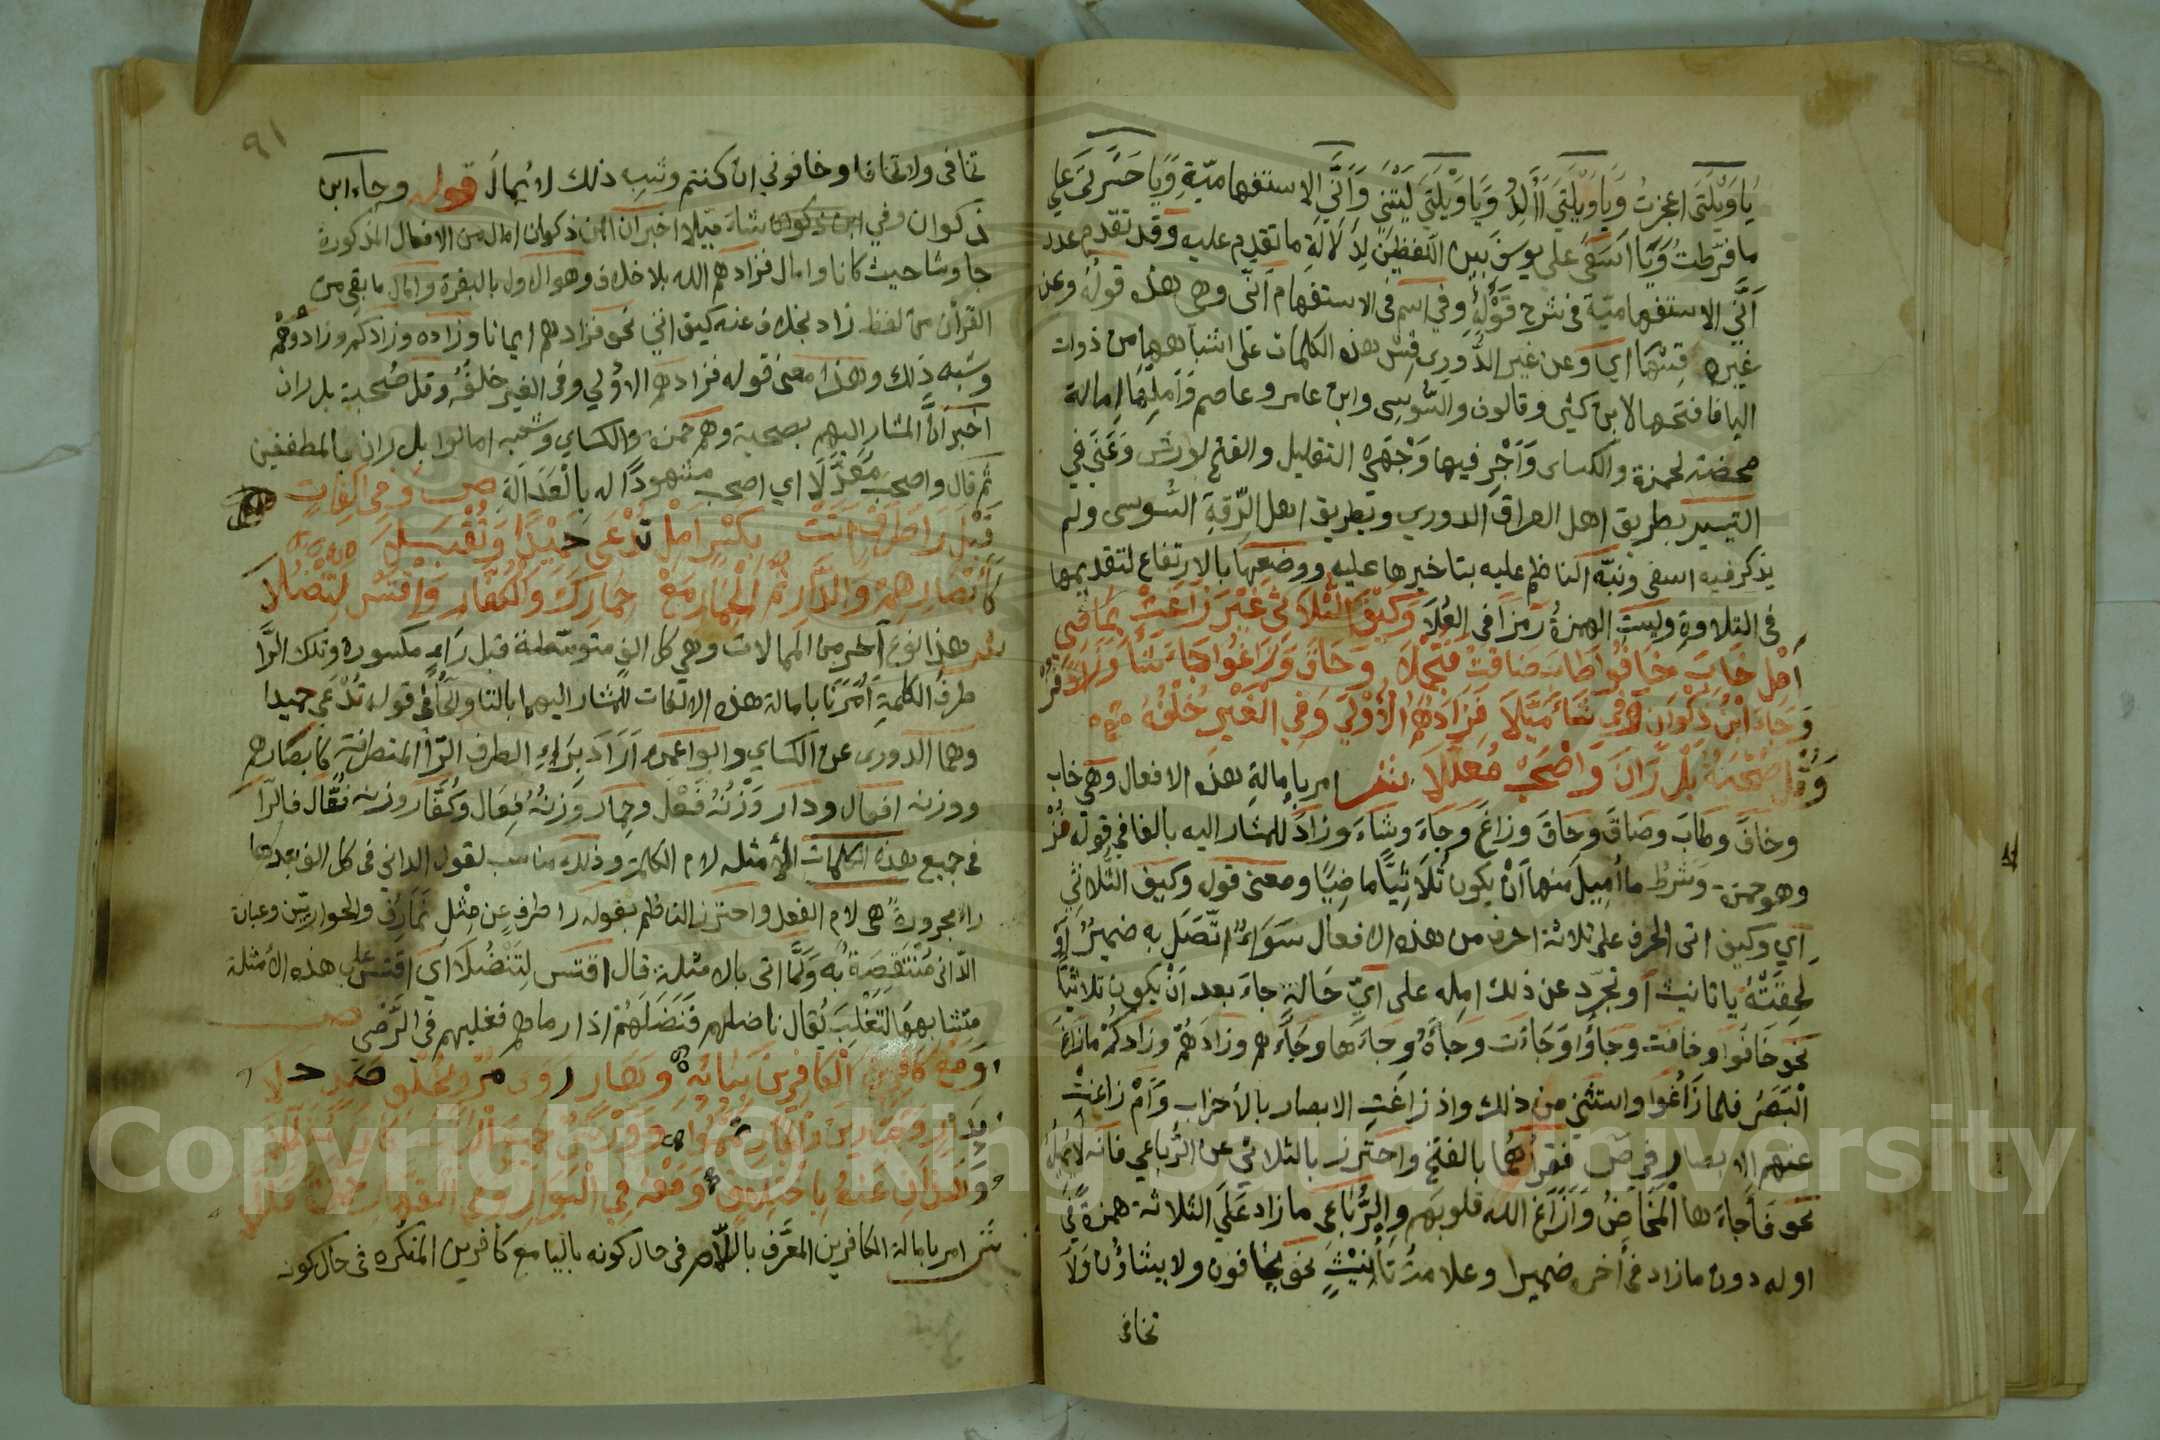 يَا وَيْلَتَى اعجزتُ وَيَا وَيْلَتَى أَأَلِدُ وَيَا وَيْلَتَى لَيْتَنِي وَأَنَّى الاستفهاميّةِ وَيَا حَسْرَتَى على
ما فرّطتُ وَيَا اَسَفَى على يوسفَ بين اللفظين لِدَلَالةِ ما تقدم عليه وقد تقدم عدد
أنَّى الاستفهاميّة في شرح قَوْلِهِ وفي اسم في الاستفهام أنّى وهي هذه قولُهُ وعن
غيره قِسْهَا اي وعن غير الدُّورِى قِسْ هذه الكلمات على اشباهها من ذوات
اليا فافتحها لابن كثير وقالون والسُّوسِى وابن عامر وعاصم وَأَمِلْهَا اِمالة
محضة لحمزة والكساى وَأَجْرِ فيها وَجْهَىِ التقليل والفتح لورش وَعَنَى في
التيسير بطريق اهل العراق الدوري وبطريق اهل الرّقة السُّوسى ولم
يذكر فيه اسفى ونبّه الناظم عليه بتاخيرها عليه ووضعها بالارتفاع لتقديمها
في التلاوةِ وليستِ الهمزةُ رمزًا في العُلَا وَكَيْفَ الثُّلَاثِى غَيْرَ زَاغَتْ بِمَاضِي
اَمِلْ خَابَ خَافُوا طَابَ ضَاقَتْ فَتُجْمِلَا وَحَاقَ وَزَاغُوا جَاءَ شَاءَ وَزَادَ فُزْ
وَجَاءَ ابْنُ ذَكْوَانَ وَفِي شَاءَ مَيَّلَا فَزَادَهُمُ الْأُوْلَى وَفِي الْغَيْرِ خُلْفُهُ
وَقُلْ صُحْبَةٌ بَلْ رَانَ وَاصْحَبْ مُعَدَّلَا شر امر بإمالةِ هذه الافعال وهي خاب
وخافَ وطابَ وضاقَ وحَاقَ وزاغَ وجَاءَ وشاءَ وزادَ للمشار اليه بالفا في قوله فُزْ
وهو حمزة وشرطُ ما أُمِيلَ منها اَنْ يكون ثُلَاثِيًّا ماضِيًا ومعنى قوله وكيف الثُّلاثِي
اي وكيف اتى الحرف على ثلاثة احرف من هذه الافعال سَوَاءٌ اتّصَلَ به ضميرٌ اَوْ
لَحِقَتْهُ يا تانيث أو تَجرّد عن ذلك امِله على اىّ حَالةٍ جاءَ بعد اَنْ يكون ثلاثيًّا
نحو خَافُوا وخافت وجَاؤُا وَجَاءَت وجَاءَهُ وجَاءَها وجَاءَهم وزادَهُمْ وزادكمْ ما زاغ
الْبَصَرُ فلما زَاغُوا واستثنى من ذلك واذ زاغتِ الابصار بالأحزاب وَأَمْ زاغتْ
عنهم الابصار في صۤ فقرأهُما بالفتح واحتَرز بالثلاثي عن الرُّباعي فانّه لا يُمِلْهُ
نحو فَأَجاءَها الْمَخَاضُ وَأَزَاغَ الله قلوبَهم وَالرُّبَاعِى ما زاد عَلَى الثلاثة همزة في
اوله دون ما زاد في أخره ضميرا وعلامةُ تَأنِيثٍ نحو يخافون ولا يشاؤن وَلَا
تخافى
٩١
تخافى ولا تخافا وخافوني ان كنتم وشبه ذلك لا يُمالَ قوله وجاء ابن
ذكوان وفي شاء ميّلا اخبر ان ابن ذكوان امال من الافعال المذكورة
جا وشا حيث كانا وامال فزادهم الله بلا خلاف وهو الاول بالبقرة وامال ما بقي من
القرأن من لفظ زاد بخلاف عنه كيف اتى نحو فزادهم ايمانا وزاده وزادكم وزادوهم
وشبه ذلك وهذا معنى قوله فزادهم الاولى وفى الغير خلفُه وقل صُحبة بل ران
اخبر اَنَّ المشار اليهم بصحبة وهم حمزة والكساي وشعبه امالوا بل ران بالمطففين
ثم قال واصحب مُعَدَّلَا اي اصحب مشهودًا له بالْعَدَالَةِ ص وَفِي اَلِفَاتٍ
قَبْلَ رَا طَرَفٍ اَتَتْ بِكَسْرٍ اَمِلْ تُدْعَى حَمِيدًا وَتُقْبَلَا
كَأَبْصَارِهِمْ وَالدَّارِ ثُمَّ الْحِمَارِ مَعْ حِمَارِكَ وَالْكُفَّارِ وَاقْتَسْ لِتَنْضُلَا
شر هذا نوع آخر من الممالات وهي كل الف متوسّطة قبل رَاءٍ مكسورة وتلك الرَّا
طرفُ الكلمةِ اَمَرَنَا بامالة هذه الالفات للمشار اليهما بالتا والْحَا في قوله تُدْعَى حميدا
وهما الدورى عن الكساي وابو اعمرو اَرَادَ بِرَاءِ الطرف الرّاَ المتطرفة كابصارهم
ووزنه افعال ودار وَزْنُهُ فَعْل وحِمار وَزنُهُ فِعَال وكُفّار وزنه فُعَّال فالرّاَ
في جميع هذه الكلمات الأمثلة لام الكلمة وذلك مناسب لقول الدانى في كل الف بعدها
راءٌ مجرورةٌ هى لام الفعل واحترز الناظم بقوله را طرفٍ عن مِثْلِ نَمَارِق والحواريّين وعبارة
الدّانى مُنْتَقِصَةٌ به وَلَمَّا اتى بالامثلة قال اقتس لِتَنْضُلَا اي اقتس على هذه الأمثلة
مشابهها لتَغْلِبَ يُقال ناضلهم فَنَضَلَهُمْ اذا رماهم فغلبهم في الرَّمْى ص
وَمَعْ كَافِرِينَ الْكَافِرِينَ بِيَائِهِ وَهَارٍ رَوَى مُرْوٍ بِخُلْفٍ صَدٍ حَلَا
بَدَارِ وَجَبَّارِينَ وَالْجَارِ تَمَّمُوا وَوَرْشٌ جَمِيعَ الْبَابِ كَانَ مُقَلِّلَا
وَهَذَانِ عَنْهُ بِاخْتِلَافٍ وَمَعْهُ فِي الْبَوَارِ وَفِي الْقَهَّارِ حَمْزَةُ قَلَّلَا
شر امر بامالة الكافرين المعَّرف باللّام في حال كونه باليا مع كافرين المنكّره في حال كونه
Copyright © King Saud University